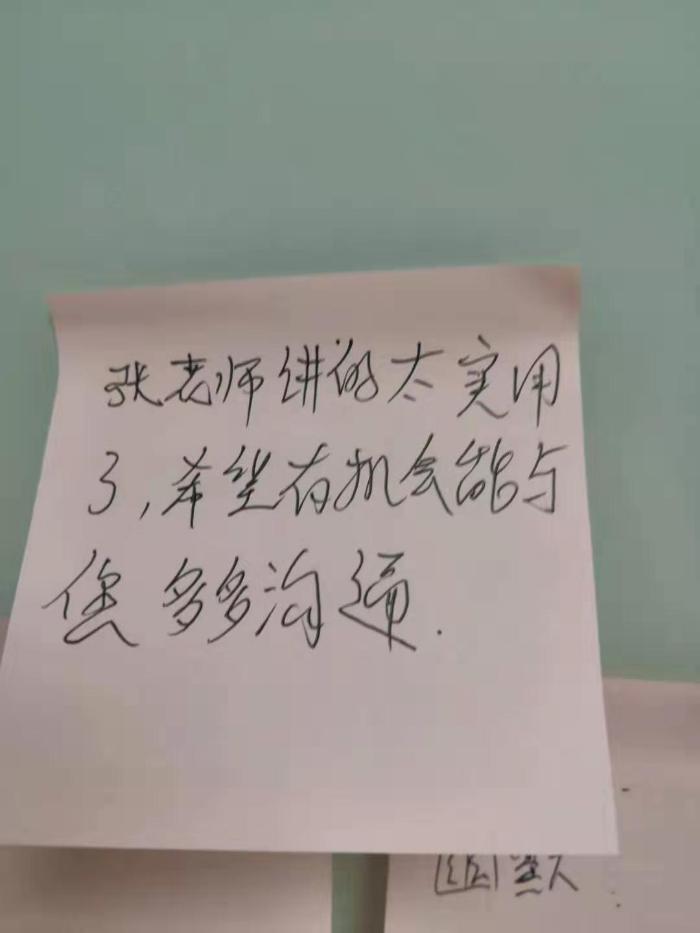 张老师讲的太实用
了,希望有机会能与
您多多沟通.